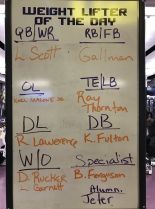 WEIGHT LIFTER
OF THE DAY
QB/WR RB/FB
L. Scott Gallman
OL TE/LB
KARL MALONE JR. Ray
Thornton
DL DB
R. Lawerence K. Fulton
W/O Specialist
D. RUCKER B. Ferguson
L. Garnett Alumn.
Jeter